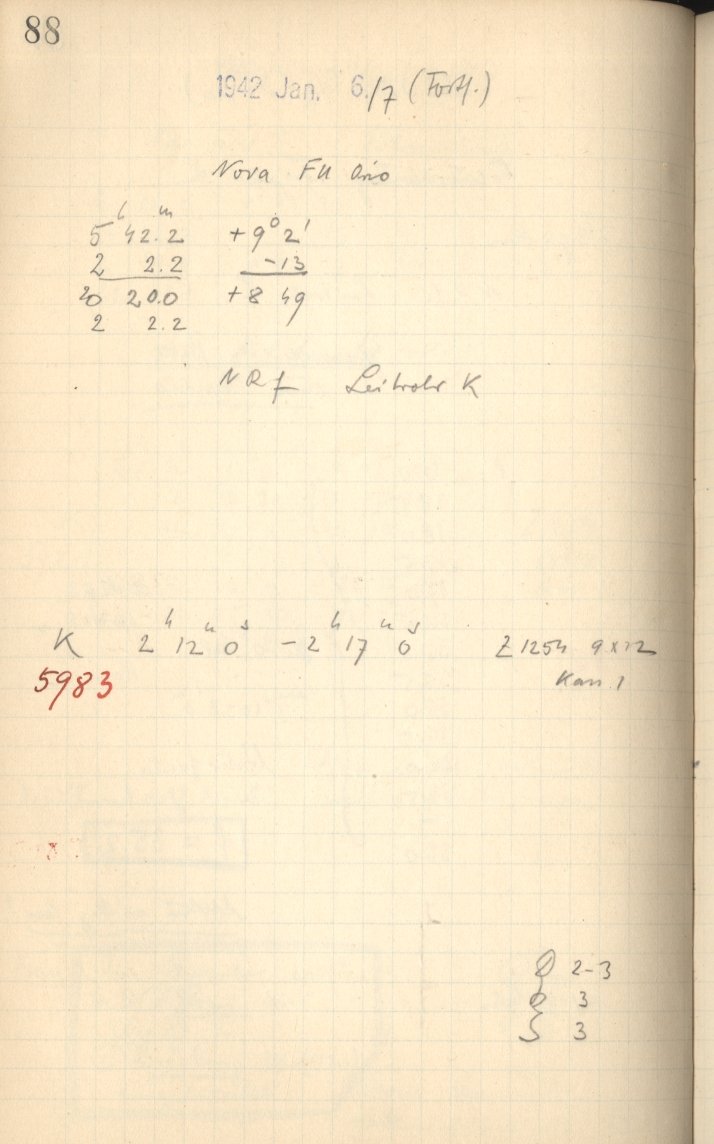 88
1942 Jan. 6./7 (Fortf.)
Nova FU Orio
5h 42m.2 +9° 2'
2 2.2 -13
20 20.0 +8 49
2 2.2
NRf Leitrohr K
K 2h 12m 0s - 2h 17m 0s Z 1254 9x12
5983 Kass. 1
D 2-3
3
3